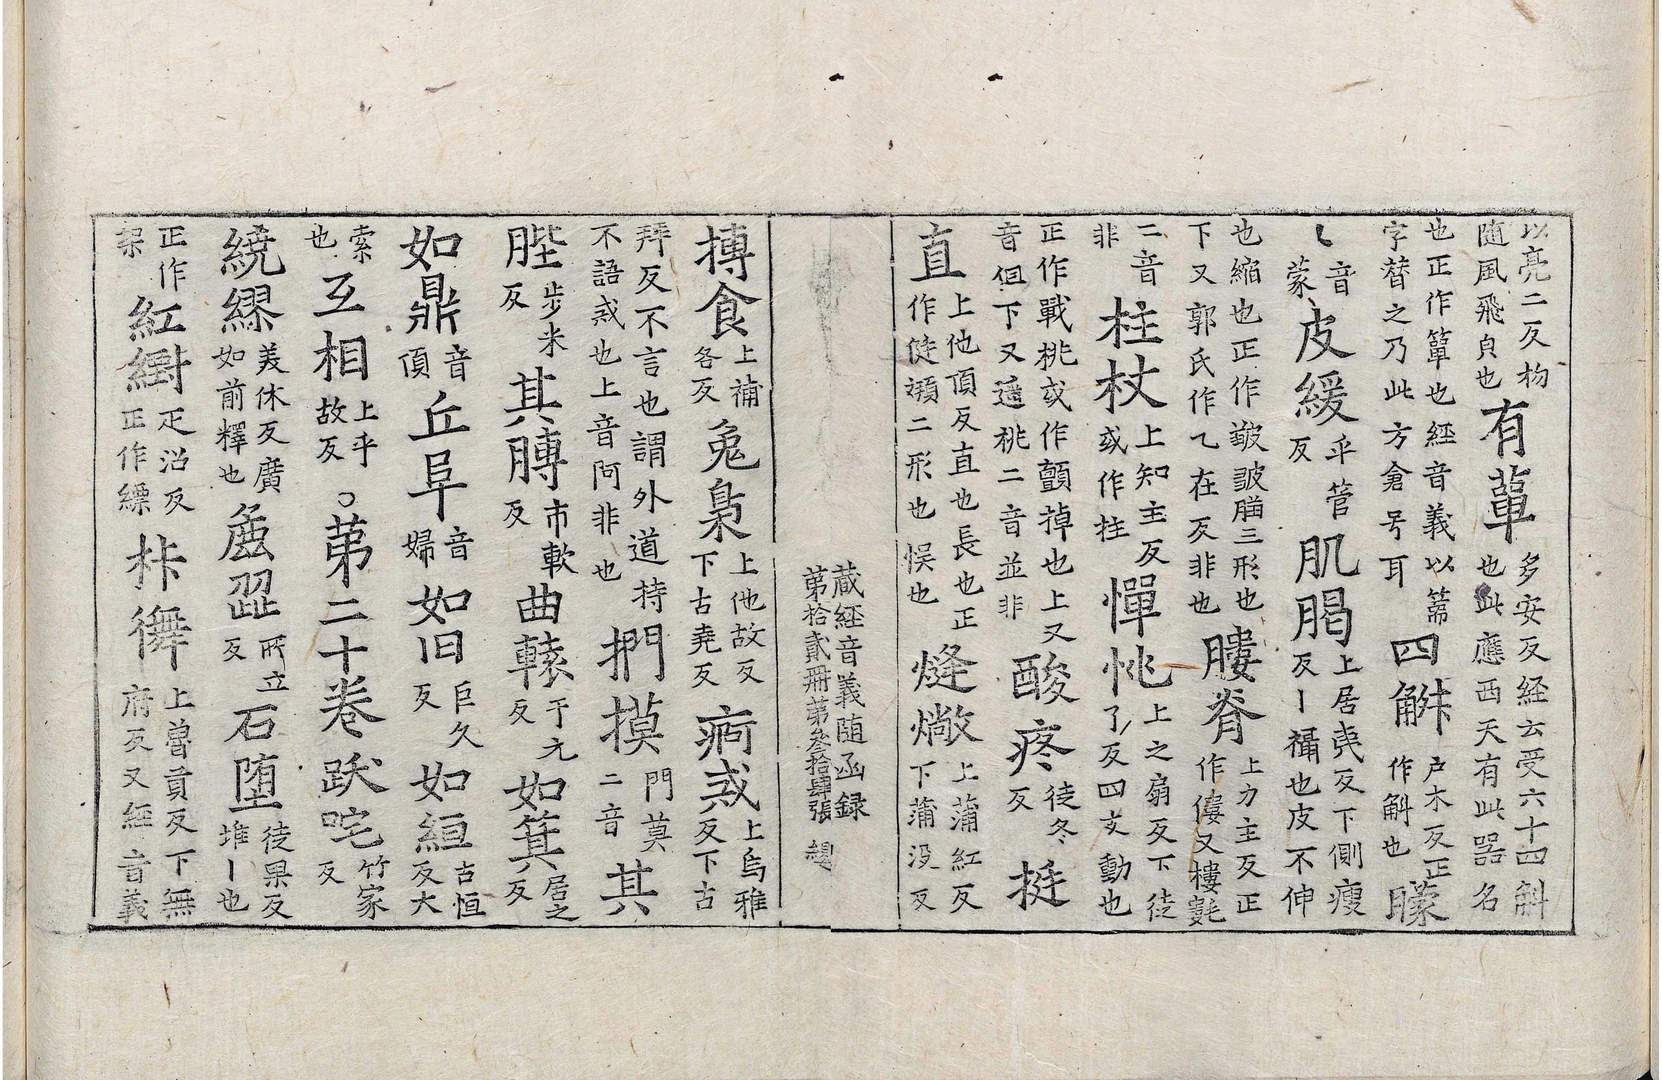 以亮二反物隨風飛㒵也有蕇多安反経云受六十四斛也此應西天有此器名
也正作簞也經音義以篅字替之乃此方倉号耳四斛戶木反正作斛也矇
〻音蒙皮緩乎管反肌腸上居夷反下側瘦反丨攝也皮不伸
也縮也正作皺皷三形也下又郭氏作乀在反非也膢脊上力主反正作僂又樓氀
二音非柱杖上知主反或作拄憚恌上之扇反下徒了反四支動也
正作戰桃或作顫掉也上又音但下又遥桃二音並非酸疼徒冬反挺
直上他頂反直也長也正作侹頲二形也悮也熢㶿上蒲紅反下蒲沒反
藏経音義随函録第拾貳冊第叁拾肆張
搏食上補各反兔梟上他故反下古堯反㾀㦯上烏雅反下古
拜反不言也謂外道持不語戒也上音阿非也捫摸門莫二音其
䏶步米反其膞市軟反曲轅于元反如箕居之反
如鼎音頂丘阜音婦如旧巨久反如絚古恒反大
索也互相上乎故反○第二十卷趺咤竹家反
繞繆美休反廣如前釋也麁澀所立反石堕徒果反堆丨也
正作架紅縎疋沼反正作縹上曽貢反下無府反又経音義